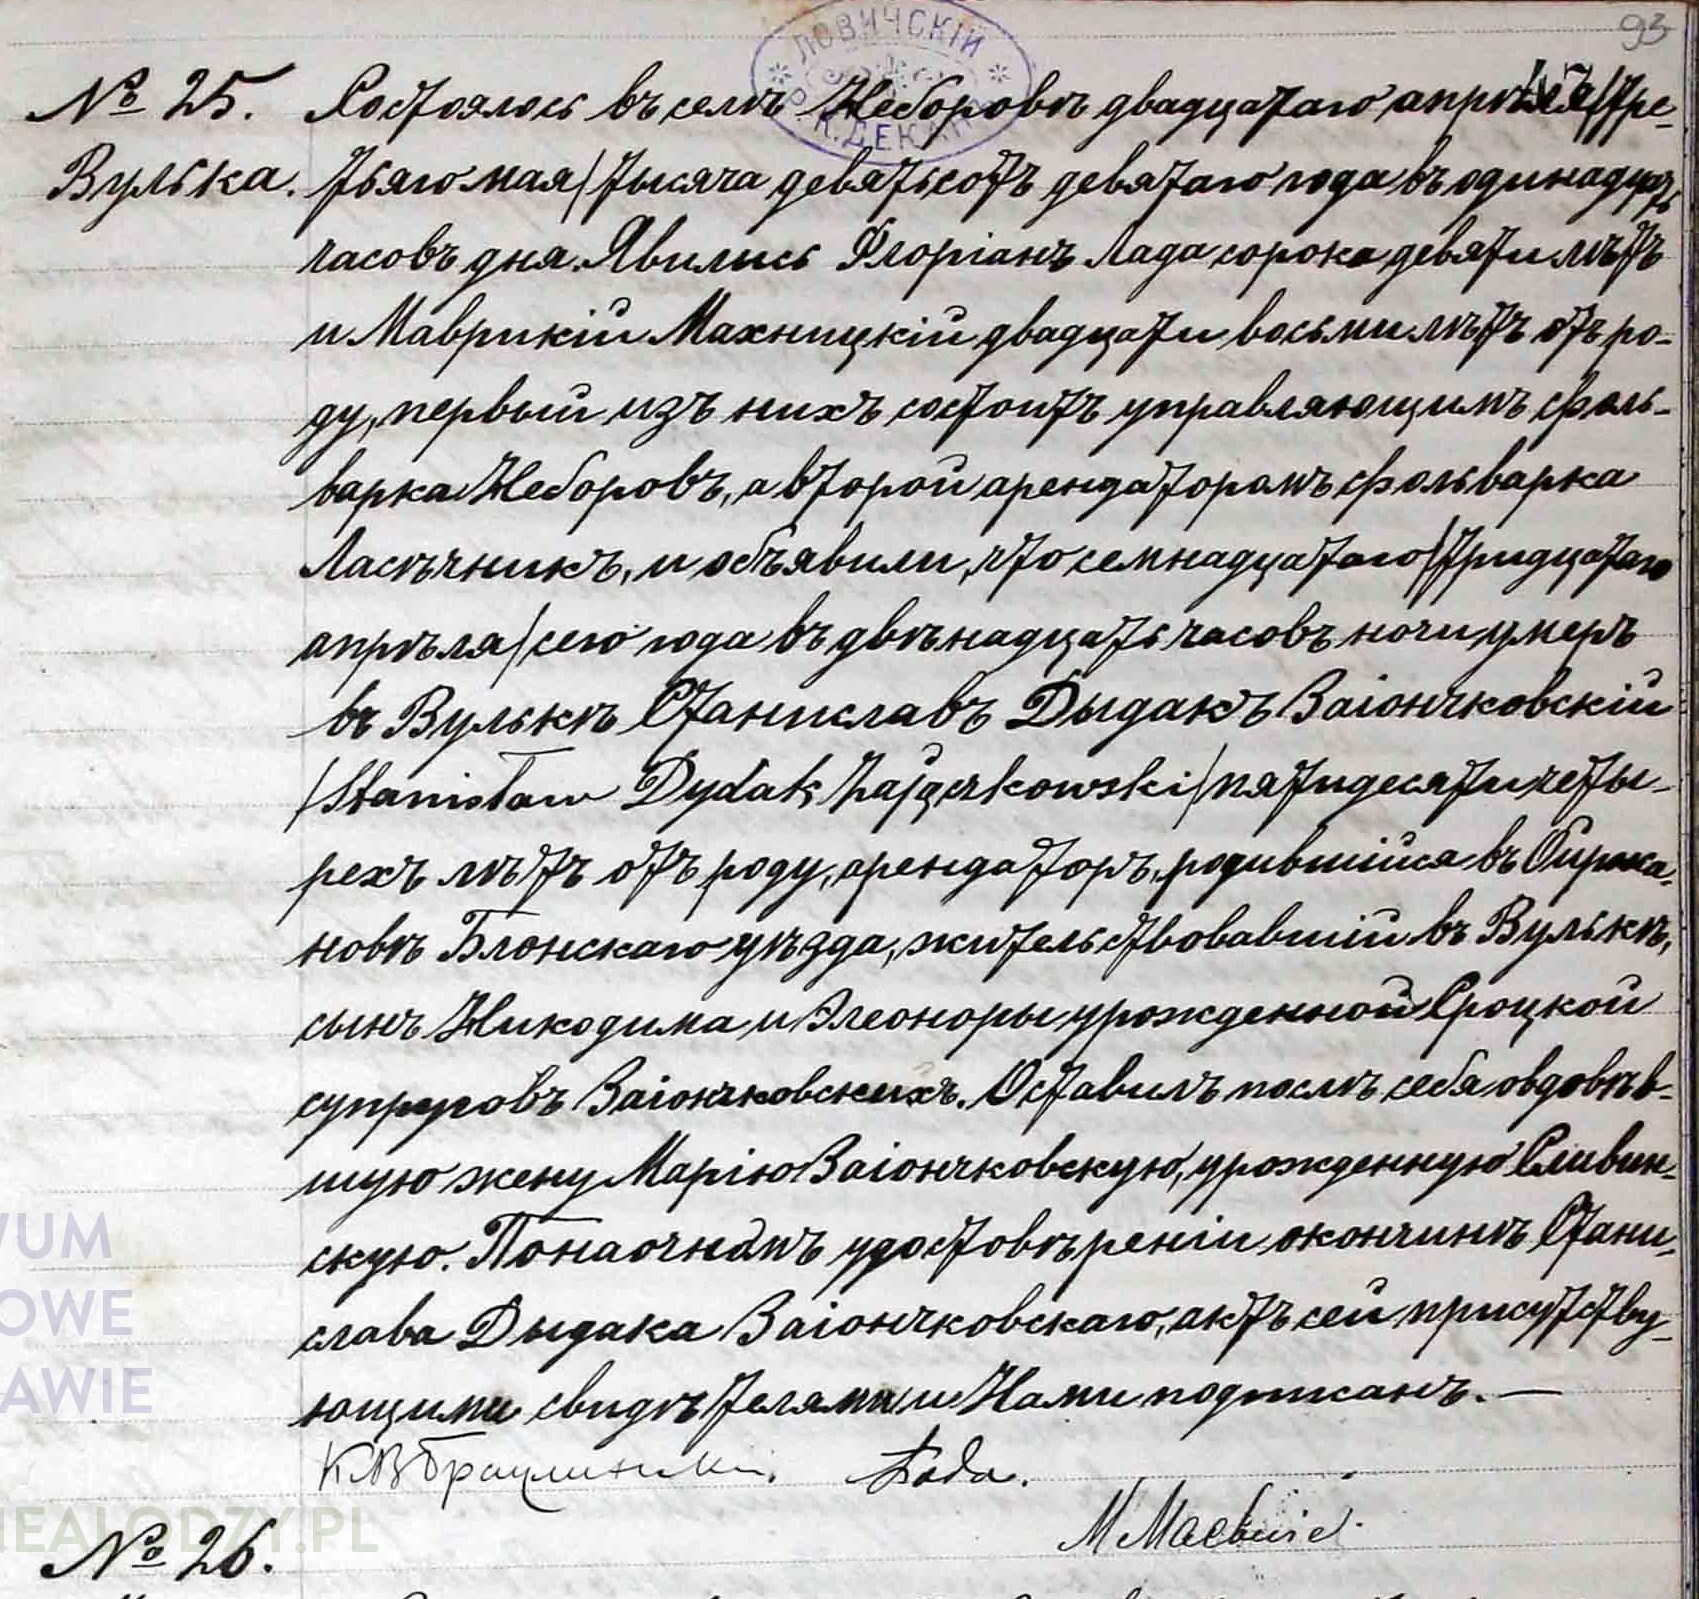 93
ЛОВИЧСКIЙ
К. ДЕКАН
№ 25. Состоялось въ селѣ Неборовѣ двадцатаго апрѣля/тре-
Вулька. тьяго мая/тысяча девятьсотъ девятаго года въ одинадцать
часовъ дня. Явились Флоріанъ Лада сорока девяти лѣтъ
и Маврикій Махницкій двадцати восьми лѣтъ отъ ро-
ду, первый изъ нихъ состоитъ управляющимъ фоль-
варка Неборовъ, а второй арендаторомъ фольварка
Ласѣчникъ, и объявили, что семнадцатаго/тридцатаго
апрѣля/сего года въ двѣнадцать часовъ ночи умеръ
въ Вулькѣ Станиславъ Дыдакъ Заіончковскій
/Stanisław Dydak Zajączkowski/пятидесяти четы-
рехъ лѣтъ отъ роду, арендаторъ, родившійся въ
новѣ Блонскаго уѣзда, жительствовавшій въ Вулькѣ,
сынъ Никодима и Элеоноры урожденной Сроцкой
супруговъ Заіончковскихъ. Оставилъ послѣ себя овдовѣв-
шую жену Марію Заіончковскую, урожденную Сливин-
скую. По наочномъ удостовѣреніи о кончинѣ Стани-
слава Дыдака Заіончковскаго, актъ сей присутству-
ющими свидѣтелями и Нами подписанъ. —
Łada.
М
№ 26.
WUM
OWE
AWIE
NEALODZY.PL